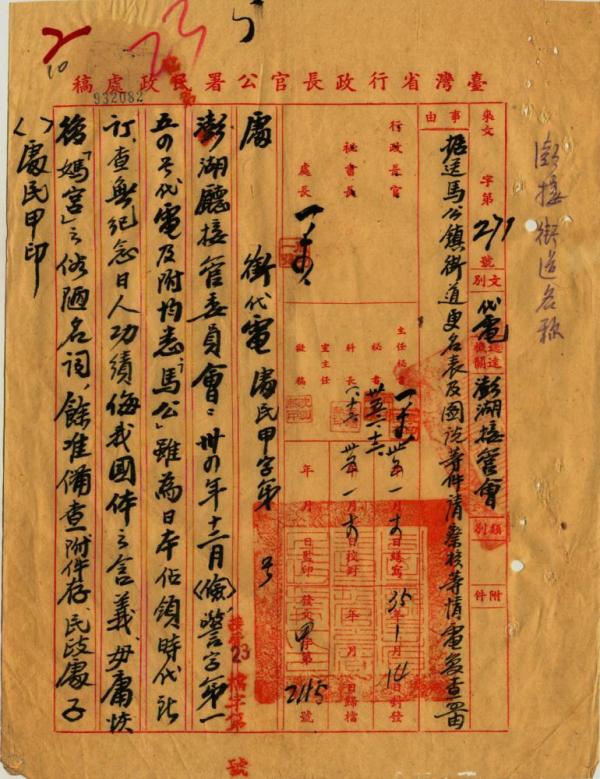 臺灣省行政長官公署民政處稿
932082
10
來文 字第 271 號
文別 代電
送達機關 澎湖接管會
類別
附件
事由
據送馬公鎮街道更名表及圖說等件請鑒核等情電希查照
行政長官
秘書長
處長
主任秘書
秘書
科長
室主任
擬稿
卅五年一月 日繕寫
卅五年一月 日校對
年 月 日監印
35年1月14日封發
年 月 日歸檔
發文 甲字第 2115 號
檔字第 號
23
處銜代電 處民甲字第 號
澎湖廳接管委員會:卅四年十二月(儉)警字第一
五四號代電及附均悉「馬公」雖為日本佔領時代所
訂,查無紀念日人功績侮我國体之含義,毋庸恢
復「媽宮」之俗陋名詞,餘准備查附件存,民政處子
( )處民甲印
澎接街道名稱